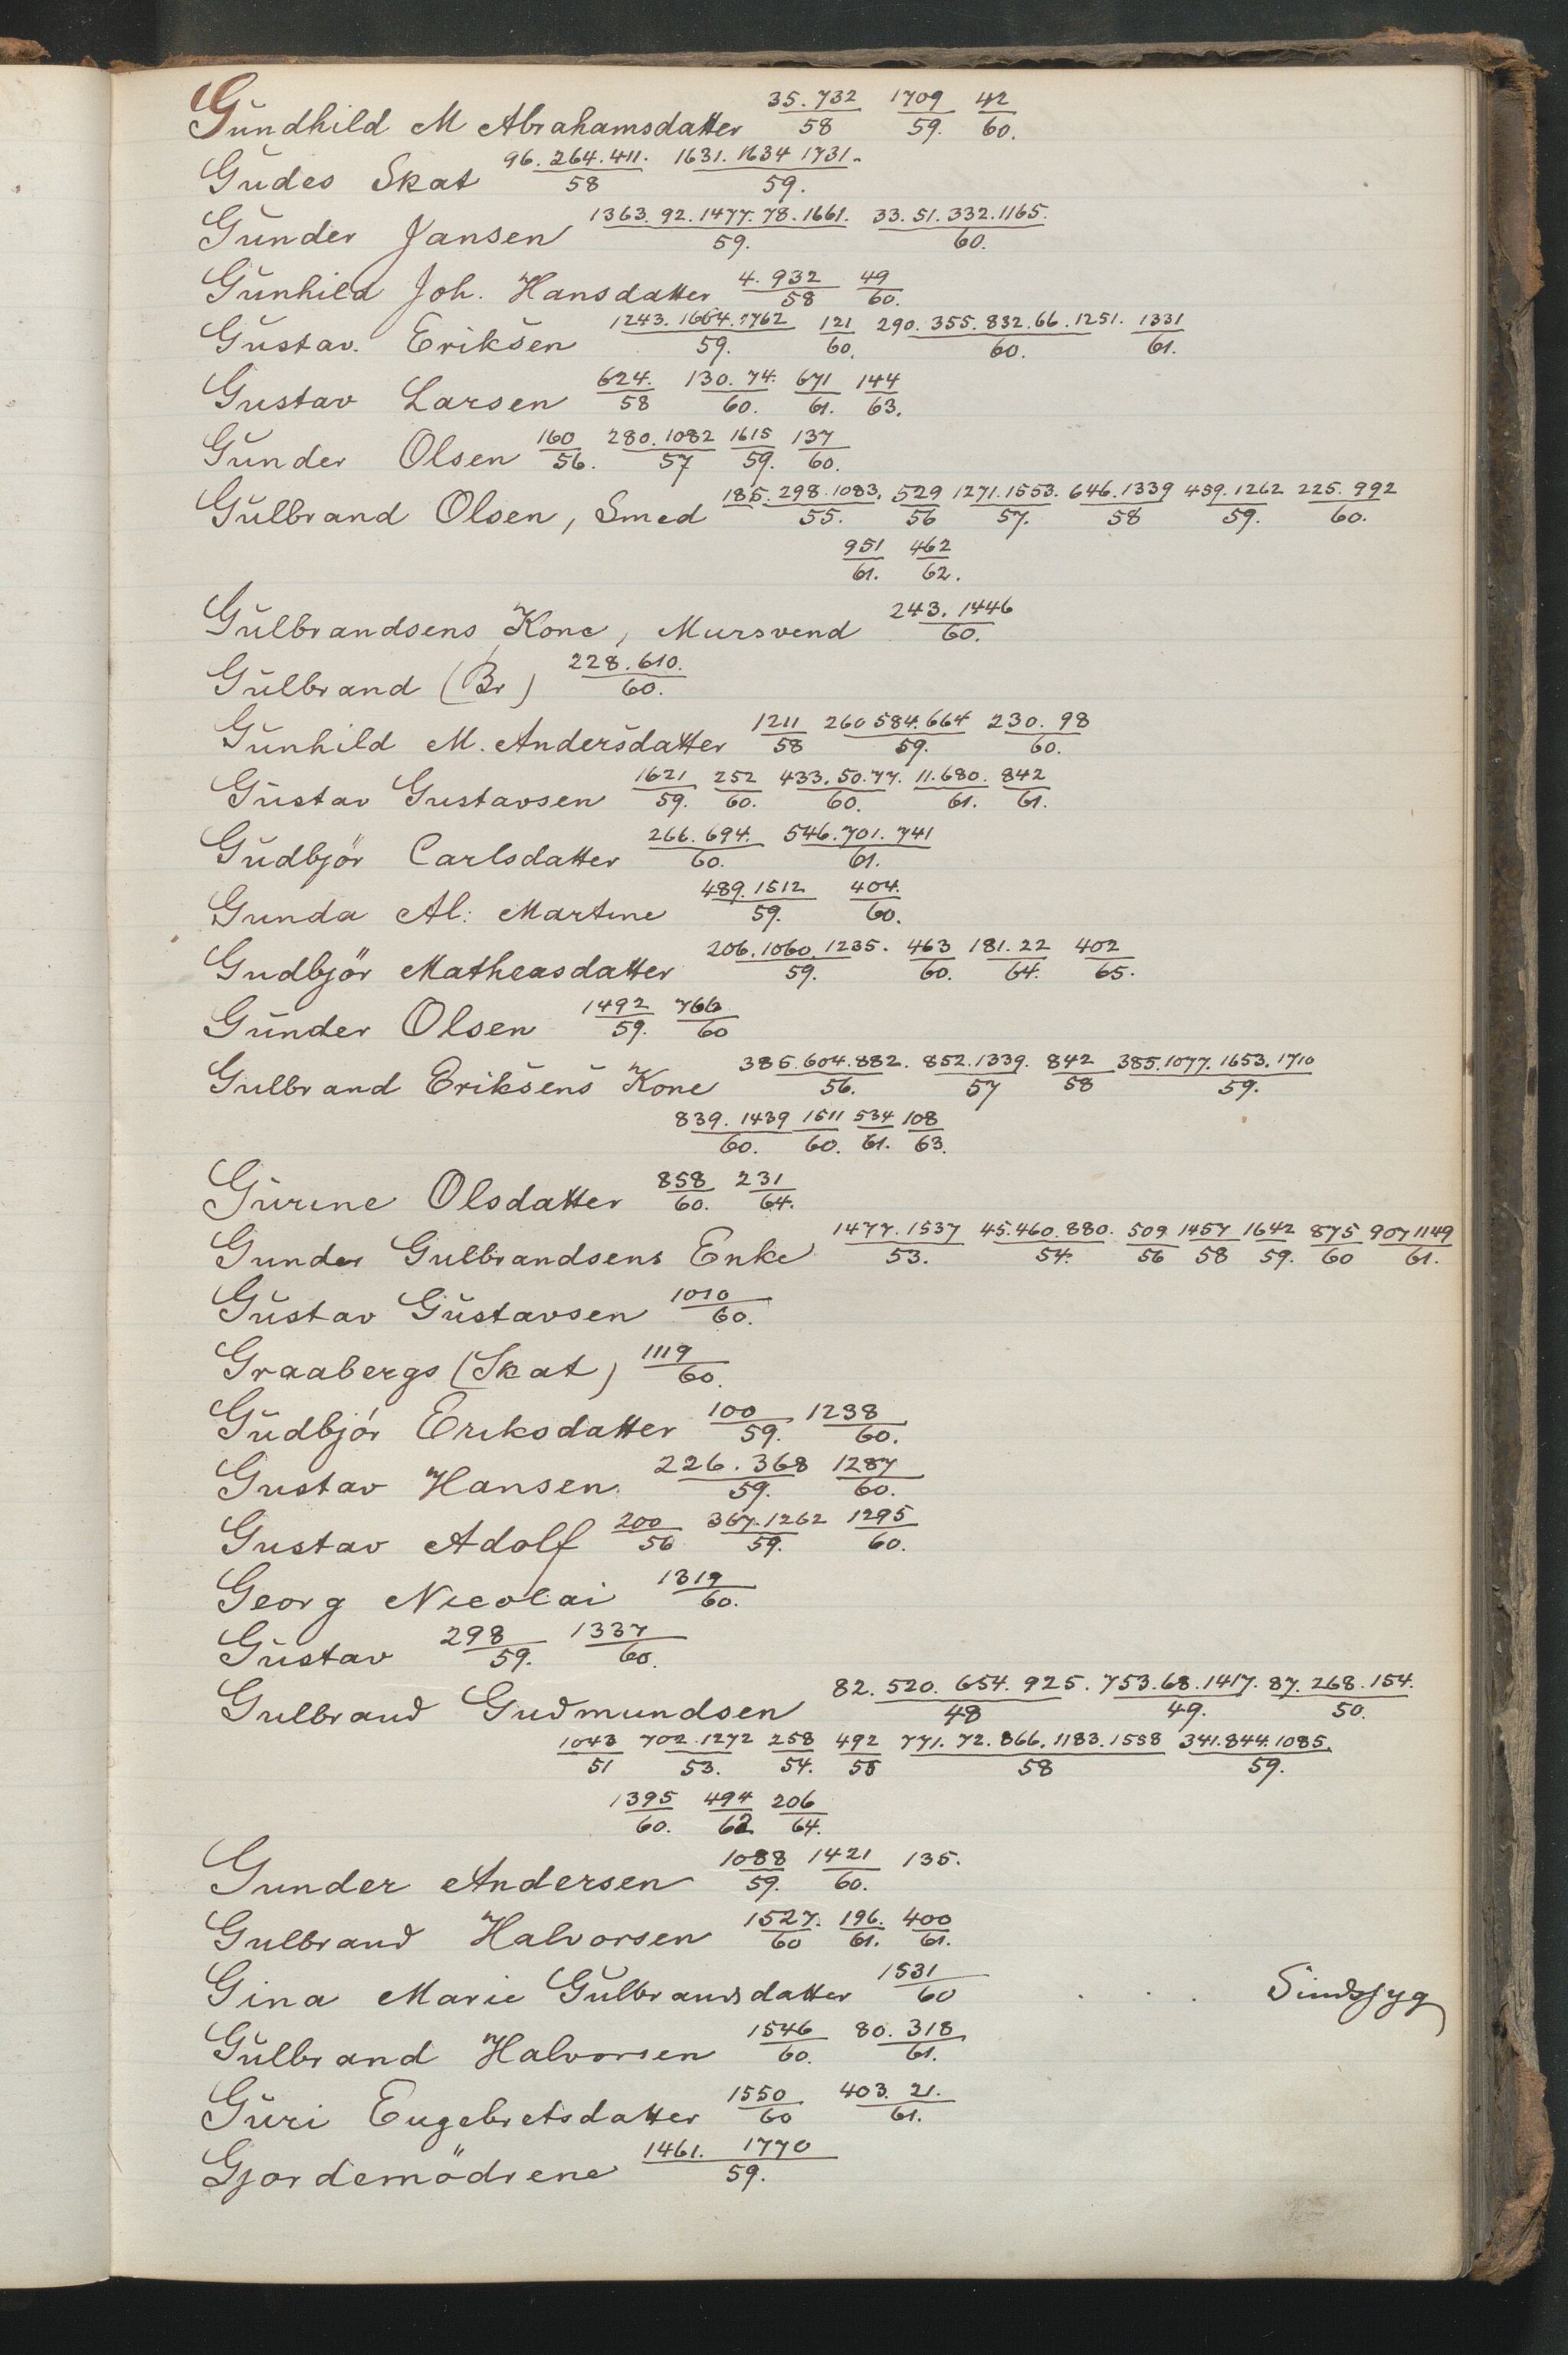 Gundhild M Abrahamsdatter 35.732/58 1709/59. 42/60.
Gudes Skat 96.264.411./58 1631.1634 1731./59.
Gunder Jansen 1363.92.1477.78.1661./59. 33.51.332.1165./60.
Gunhild Joh. Hansdatter 4.932/58 49/60.
Gustav. Eriksen 1243.1664.1762/59. 121/60. 290.355.832.66.1251./60. 1331/61.
Gustav Larsen 624./58 130.74./60. 671/61. 144/63.
Gunder Olsen 160/56. 280.1082/57 1615/59. 137/60.
Gulbrand Olsen, Smed 185.298.1083./55. 529/56 1271.1553./57. 646.1339/58 459.1262/59. 225.992/60.
951/61. 462/62.
Gulbrandsens Kone, Mursvend 243.1446/60.
Gulbrand (Br) 228.610./60.
Gunhild M. Andersdatter 1211/58 260 584.664/59. 230.98/60.
Gustav Gustavsen 1621/59. 252/60. 433.50.77./60. 11.680./61. 842/61.
Gudbjör Carlsdatter 266.694./60. 546.701.741/61.
Gunda Al: Martine 489.1512/59. 404./60.
Gudbjör Matheasdatter 206.1060.1235./59. 463/60. 181.22/64. 402/65.
Gunder Olsen 1492/59. 766/60
Gulbrand Eriksens Kone 385.604.882./56. 852.1339./57 842/58 385.1077.1653.1710/59.
839.1439/60. 1511/60. 534/61. 108/63.
Gurine Olsdatter 858/60. 231/64.
Gunder Gulbrandsens Enke 1477.1537/53. 45.460.880./54. 509/56 1457/58 1642/59. 875/60 907 1149/61.
Gustav Gustavsen 1010/60.
Graabergs (Skat) 1119/60.
Gudbjör Eriksdatter 100/59. 1238/60.
Gustav Hansen 226.368/59. 1287/60.
Gustav Adolf 200/56 367.1262/59. 1295/60.
Georg Nicolai 1319/60.
Gustav 298/59. 1337/60.
Gulbrand Gudmundsen 82.520.654.925./48 753.68.1417./49. 87.268.154./50.
1043/51 702.1272/53. 258/54. 492/55 771.72.866.1183.1538/58 341.844.1085./59.
1395/60. 494/62 206/64.
Gunder Andersen 1088/59. 1421/60. 135.
Gulbrand Halvorsen 1527./60 196./61. 400/61.
Gina Marie Gulbrandsdatter 1531/60 . . . Sindssyg
Gulbrand Halvorsen 1546/60. 80.318/61.
Guri Engebretsdatter 1550/60 403.21./61.
Gjordemödrene 1461. 1770/59.